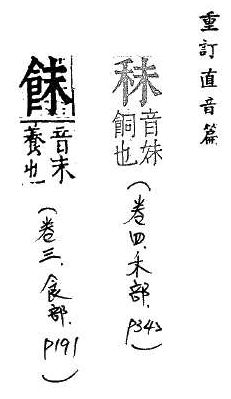 重訂直音篇
秣 音妹 飼也 (卷四.禾部.p342)
䬴 音末 養也 (卷三.食部.p191)